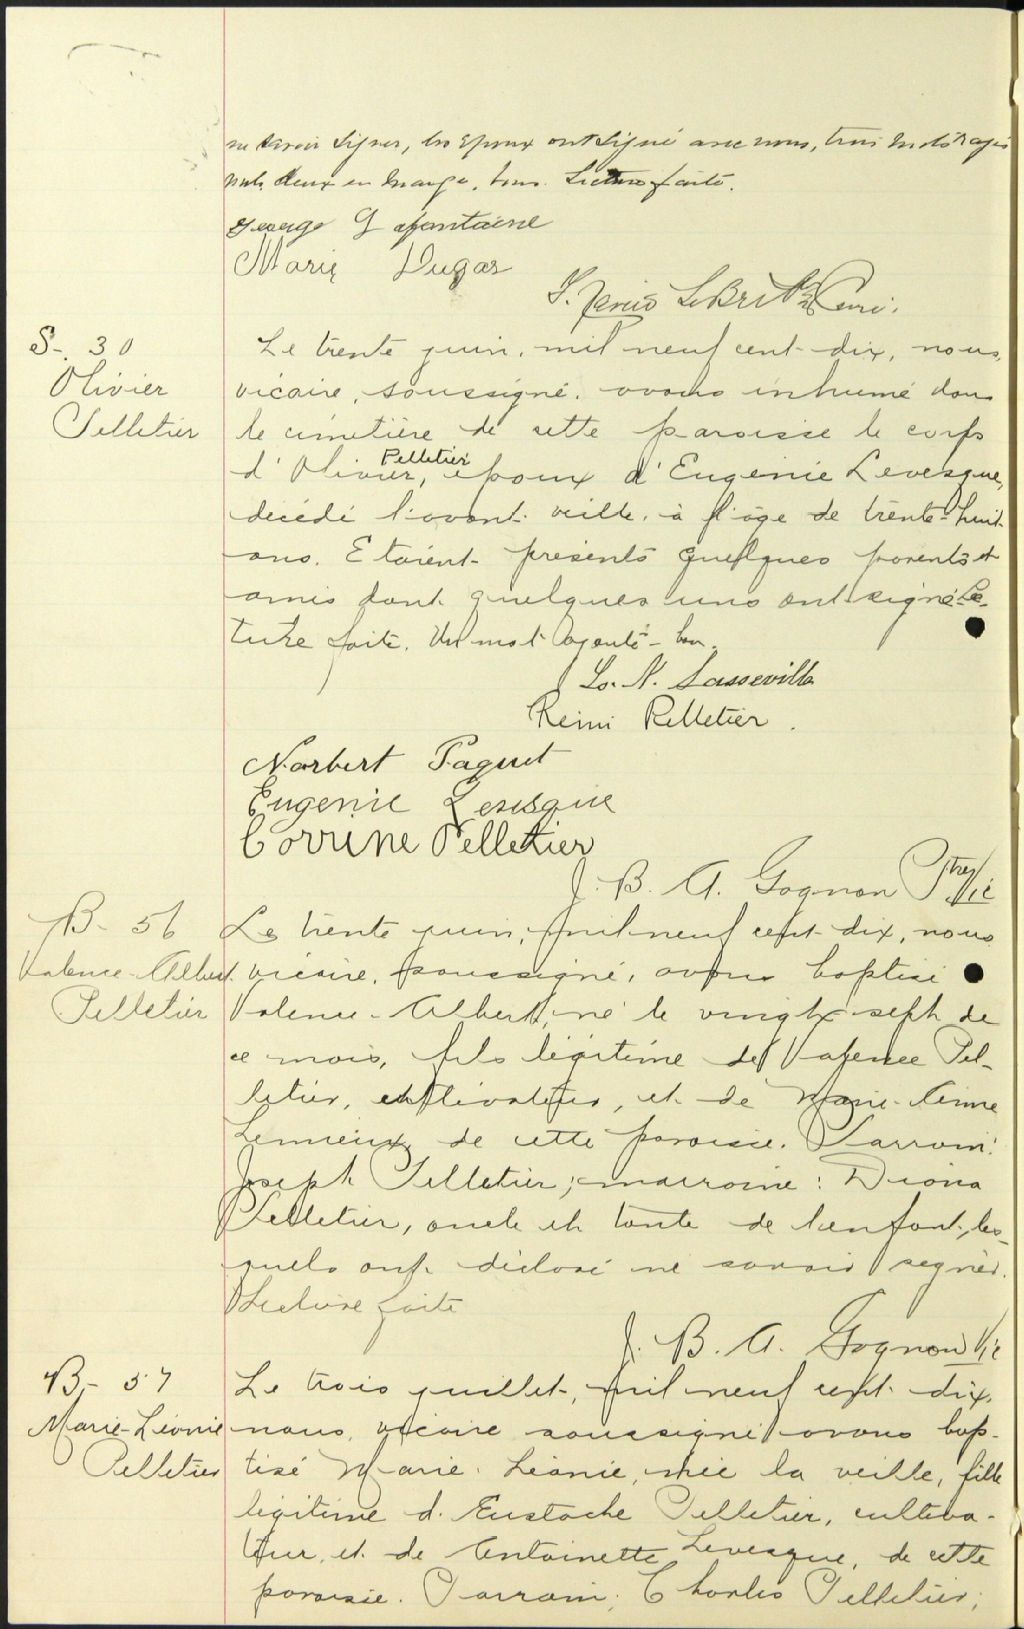 ne savoir signer, les époux ont signé avec nous, trois mots rayés
nuls, deux en marge, bons. Lecture faite.
George Lafontaine
Marie Dugas
LeBel Curé.
S-. 30
Olivier
Pelletier
Le trente juin, mil neuf cent-dix, nous,
vicaire, soussigné, avons inhumé dans
le cimetière de cette paroisse le corps
d'Olivier, Pelletier époux d'Eugénie Levesque,
décédé l'avant-veille, à l'âge de trente-huit
ans. Etaient présents quelques parents et
amis dont quelques uns ont signé. Lec-
ture faite. Un mot ajouté - bon.
Ls. N. Lasseville
Rémi Pelletier.
Norbert Paquet
Eugenie Levesque
Corrine Pelletier
J. B. A. Gagnon Ptre Vic
B- 56
Valence-Albert
Pelletier
Le trente juin, mil neuf cent-dix, nous
vicaire, soussigné, avons baptisé
Valence-Albert, né le vingt-sept de
ce mois, fils légitime de Valence Pel-
letier, cultivateur, et de Marie-Anne
Lemieux, de cette paroisse. Parrain:
Joseph Pelletier; marraine: Diana
Pelletier, oncle et tante de l'enfant, les-
quels ont déclaré ne savoir signer.
Lecture faite
J. B. A. Gagnon Vic
B- 57
Marie-Léonie
Pelletier
Le trois juillet, mil neuf cent-dix,
nous, vicaire soussigné avons bap-
tisé Marie-Léonie, née la veille, fille
légitime d'Eustache Pelletier, cultiva-
teur, et de Antoinette Levesque, de cette
paroisse. Parrain; Charles Pelletier;